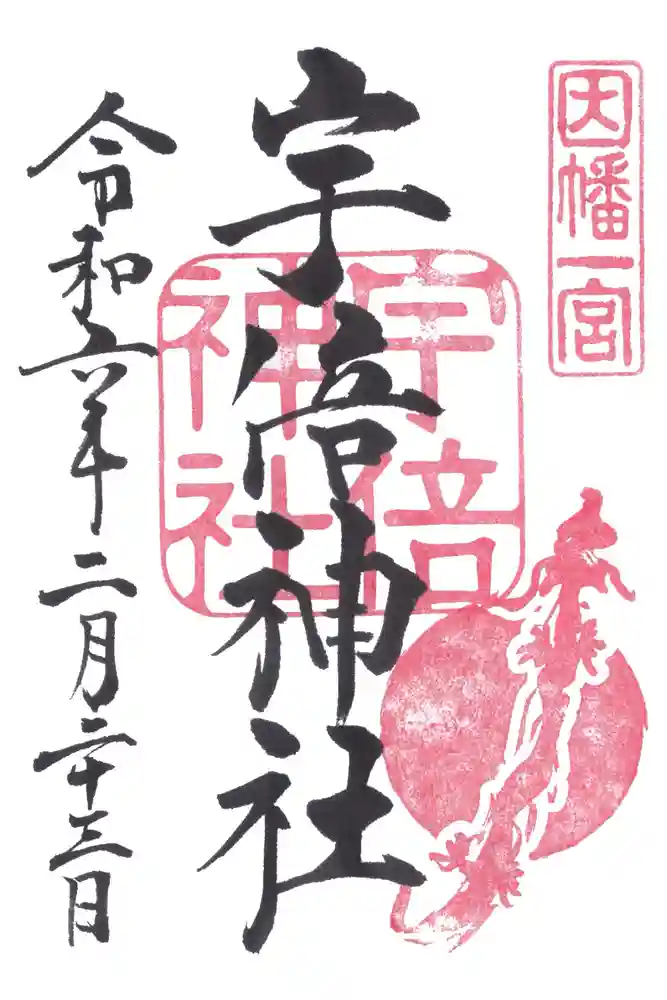 因幡一宮
宇倍神社
宇倍
神社
令和六年二月二十三日